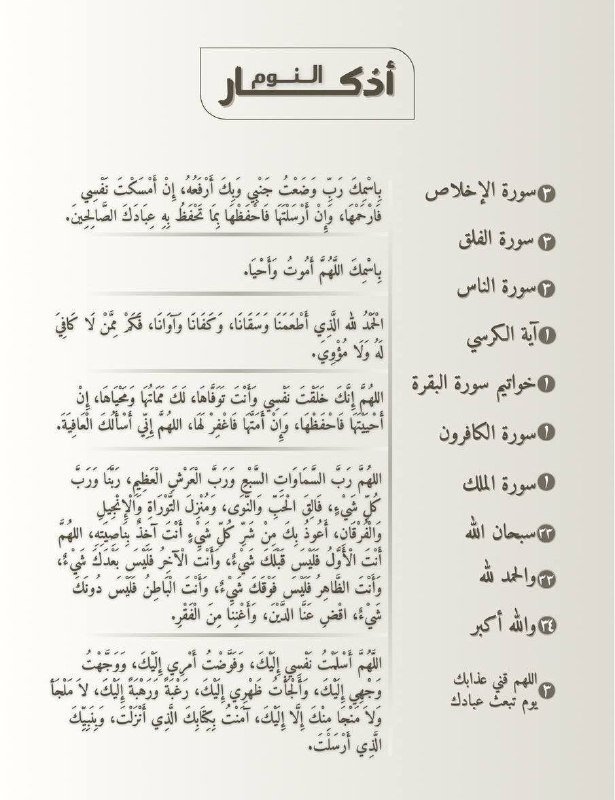 أذكـــــار النـــوم
٣ سورة الإخلاص
٣ سورة الفلق
٣ سورة الناس
١ آية الكرسي
١ خواتيم سورة البقرة
١ سورة الكافرون
١ سورة الملك
٣٣ سبحان الله
٣٣ والحمد لله
٣٤ والله أكبر
٣ اللهم قني عذابك
يوم تبعث عبادك
بِاسْمِكَ رَبِّ وَضَعْتُ جَنْبِي وَبِكَ أَرْفَعُهُ، إِنْ أَمْسَكْتَ نَفْسِي
فَارْحَمْهَا، وَإِنْ أَرْسَلْتَهَا فَاحْفَظْهَا بِمَا تَحْفَظُ بِهِ عِبَادَكَ الصَّالِحِينَ.
بِاسْمِكَ اللَّهُمَّ أَمُوتُ وَأَحْيَا.
الْحَمْدُ لله الَّذِي أَطْعَمَنَا وَسَقَانَا، وَكَفَانَا وَآوَانَا، فَكَمْ مِمَّنْ لَا كَافِيَ
لَهُ وَلَا مُؤْوِيَ.
اللهُمَّ إِنَّكَ خَلَقْتَ نَفْسِي وَأَنْتَ تَوَفَّاهَا، لَكَ مَمَاتُهَا وَمَحْيَاهَا، إِنْ
أَحْيَيْتَهَا فَاحْفَظْهَا، وَإِنْ أَمَتَّهَا فَاغْفِرْ لَهَا، اللهُمَّ إِنِّي أَسْأَلُكَ الْعَافِيَةَ.
اللهُمَّ رَبَّ السَّمَاوَاتِ السَّبْعِ وَرَبَّ الْعَرْشِ الْعَظِيمِ، رَبَّنَا وَرَبَّ
كُلِّ شَيْءٍ، فَالِقَ الْحَبِّ وَالنَّوَى، وَمُنْزِلَ التَّوْرَاةِ وَالْإِنْجِيلِ
وَالْفُرْقَانِ، أَعُوذُ بِكَ مِنْ شَرِّ كُلِّ شَيْءٍ أَنْتَ آخِذٌ بِنَاصِيَتِهِ، اللهُمَّ
أَنْتَ الْأَوَّلُ فَلَيْسَ قَبْلَكَ شَيْءٌ، وَأَنْتَ الْآخِرُ فَلَيْسَ بَعْدَكَ شَيْءٌ،
وَأَنْتَ الظَّاهِرُ فَلَيْسَ فَوْقَكَ شَيْءٌ، وَأَنْتَ الْبَاطِنُ فَلَيْسَ دُونَكَ
شَيْءٌ، اقْضِ عَنَّا الدَّيْنَ، وَأَغْنِنَا مِنَ الْفَقْرِ.
اللَّهُمَّ أَسْلَمْتُ نَفْسِي إِلَيْكَ، وَفَوَّضْتُ أَمْرِي إِلَيْكَ، وَوَجَّهْتُ
وَجْهِي إِلَيْكَ، وَأَلْجَأْتُ ظَهْرِي إِلَيْكَ، رَغْبَةً وَرَهْبَةً إِلَيْكَ، لاَ مَلْجَأَ
وَلاَ مَنْجَا مِنْكَ إِلَّا إِلَيْكَ، آمَنْتُ بِكِتَابِكَ الَّذِي أَنْزَلْتَ، وَبِنَبِيِّكَ
الَّذِي أَرْسَلْتَ.